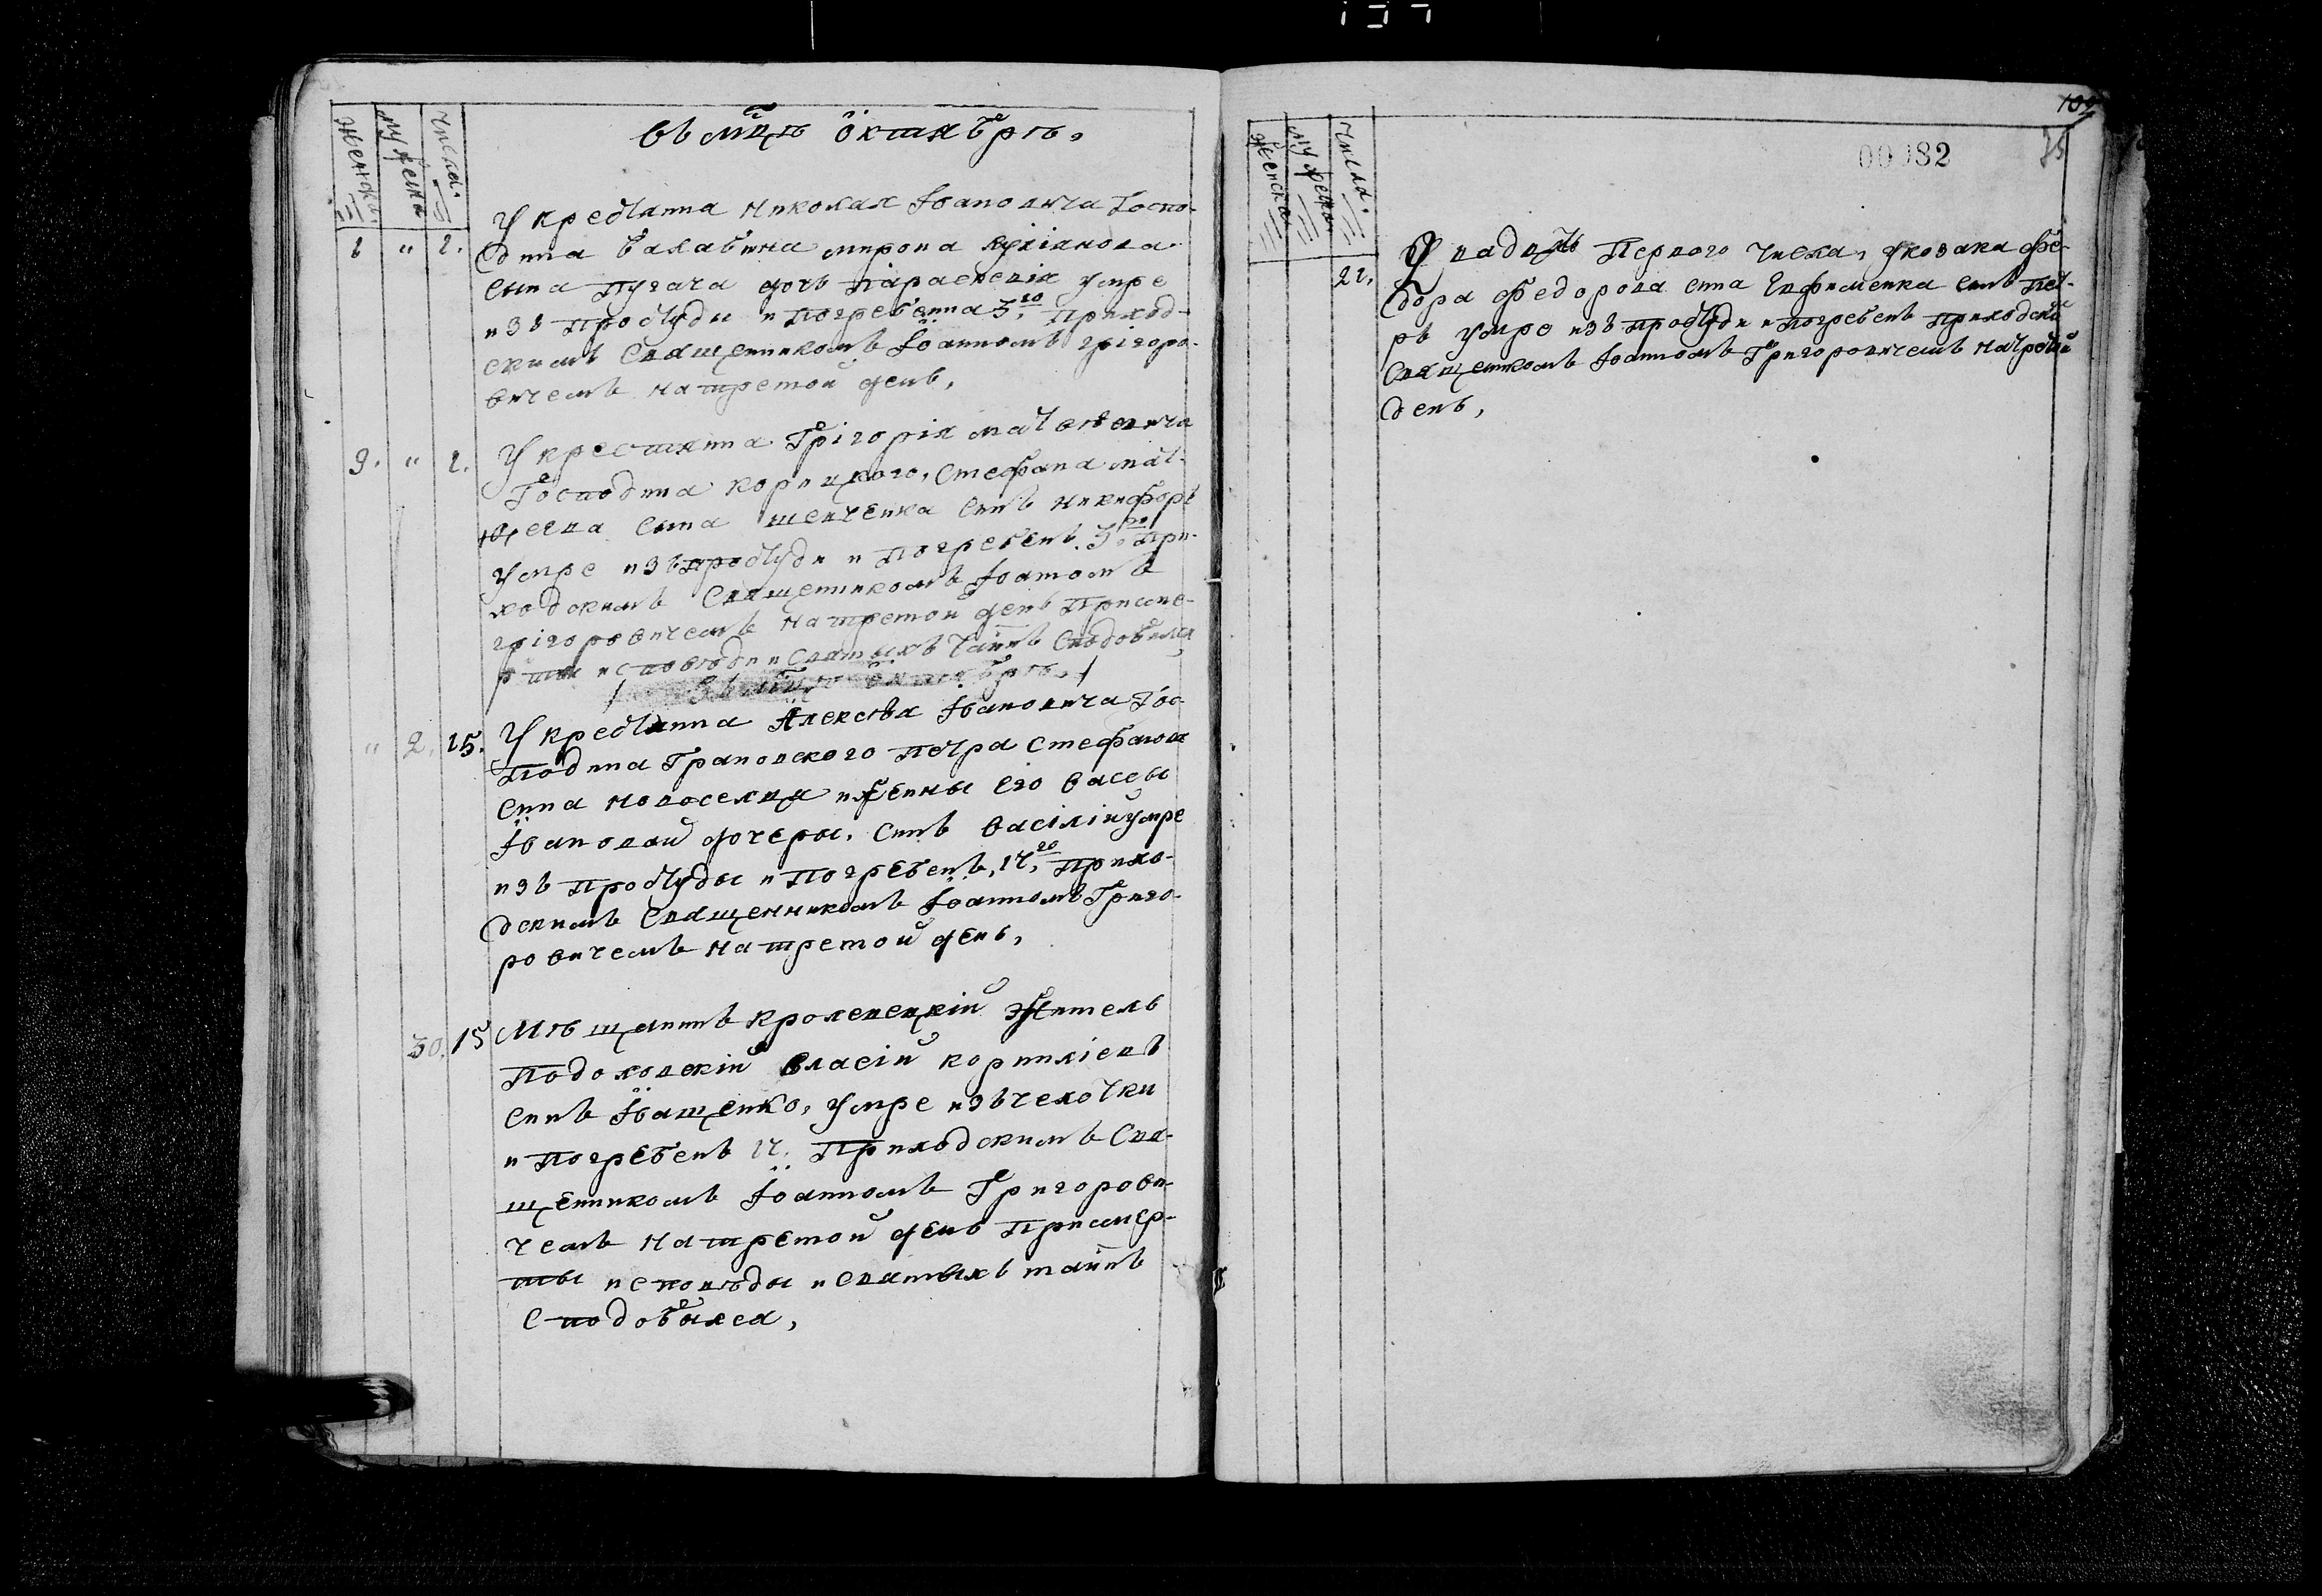 Женска
Мужеска
Числа.
въ мцѣ октябрѣ,
1 " 1.
У крестянина Николая Івановича Госпо-
дина Балабина мирона Кулікова
сына Пугача дочь Параскевія умре
изъ простуды и погребенна 3,го приход-
скимъ Священникомъ Іоанномъ Грігоро-
вичемъ на третой день,
9. " 1.
У крестянина Грігорія Матвѣевича
Господина Корицкого, Стефана мат-
сына шевченка синъ Никифоръ
умре изъ простуди и погребенъ. 3,го при-
ходскимъ Священникомъ Іоанномъ
Грігоровичемъ на третой день при сме-
рти исповѣди и Святыхъ Таинъ Сподобился
" 2. 15.
У крестянина Алексѣя Івановича Гос-
подина Грановского Петра Стефанова
сина Новоселца и жены Его Васеы
Івановой дочеры, синъ Василій умре
изъ простуды и погребенъ, 17,го прихо-
дскимъ Священникомъ Іоанномъ Григо-
ровичемъ на третой день,
30. 15
Мѣщанинъ Кролевецкій житель
Подоловскій Власій Корниліевъ
синъ Іващенко, умре изъ чехотки
и погребенъ 17. Приходскимъ Свя-
щенникомъ Іоанномъ Григорови-
чемъ на третой день при смер-
ты исповѣды и Святыхъ таинъ
сподобылся,
109
75
00082
Женска
Мужеска
Числа.
21.
Двадцять Первого числа, у козака Фе-
дора Федорова сина Евфименка синъ Пет-
ръ умре изъ простуди и погребенъ приходски
Священикомъ Іоанномъ Григоровичемъ на третий
день,